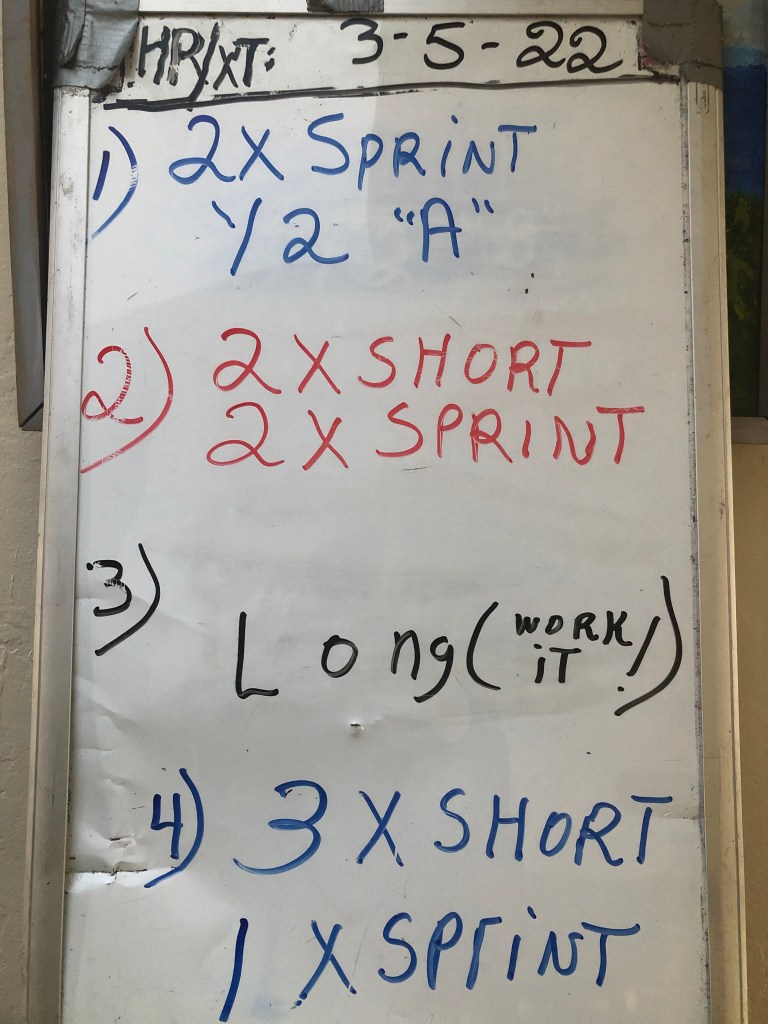 HR/XT: 3-5-22
1) 2X SPRiNT
1/2 "A"
2) 2X SHORT
2X SPRINT
3) Long (WORK iT!)
4) 3 X SHORT
1 X SPriNT